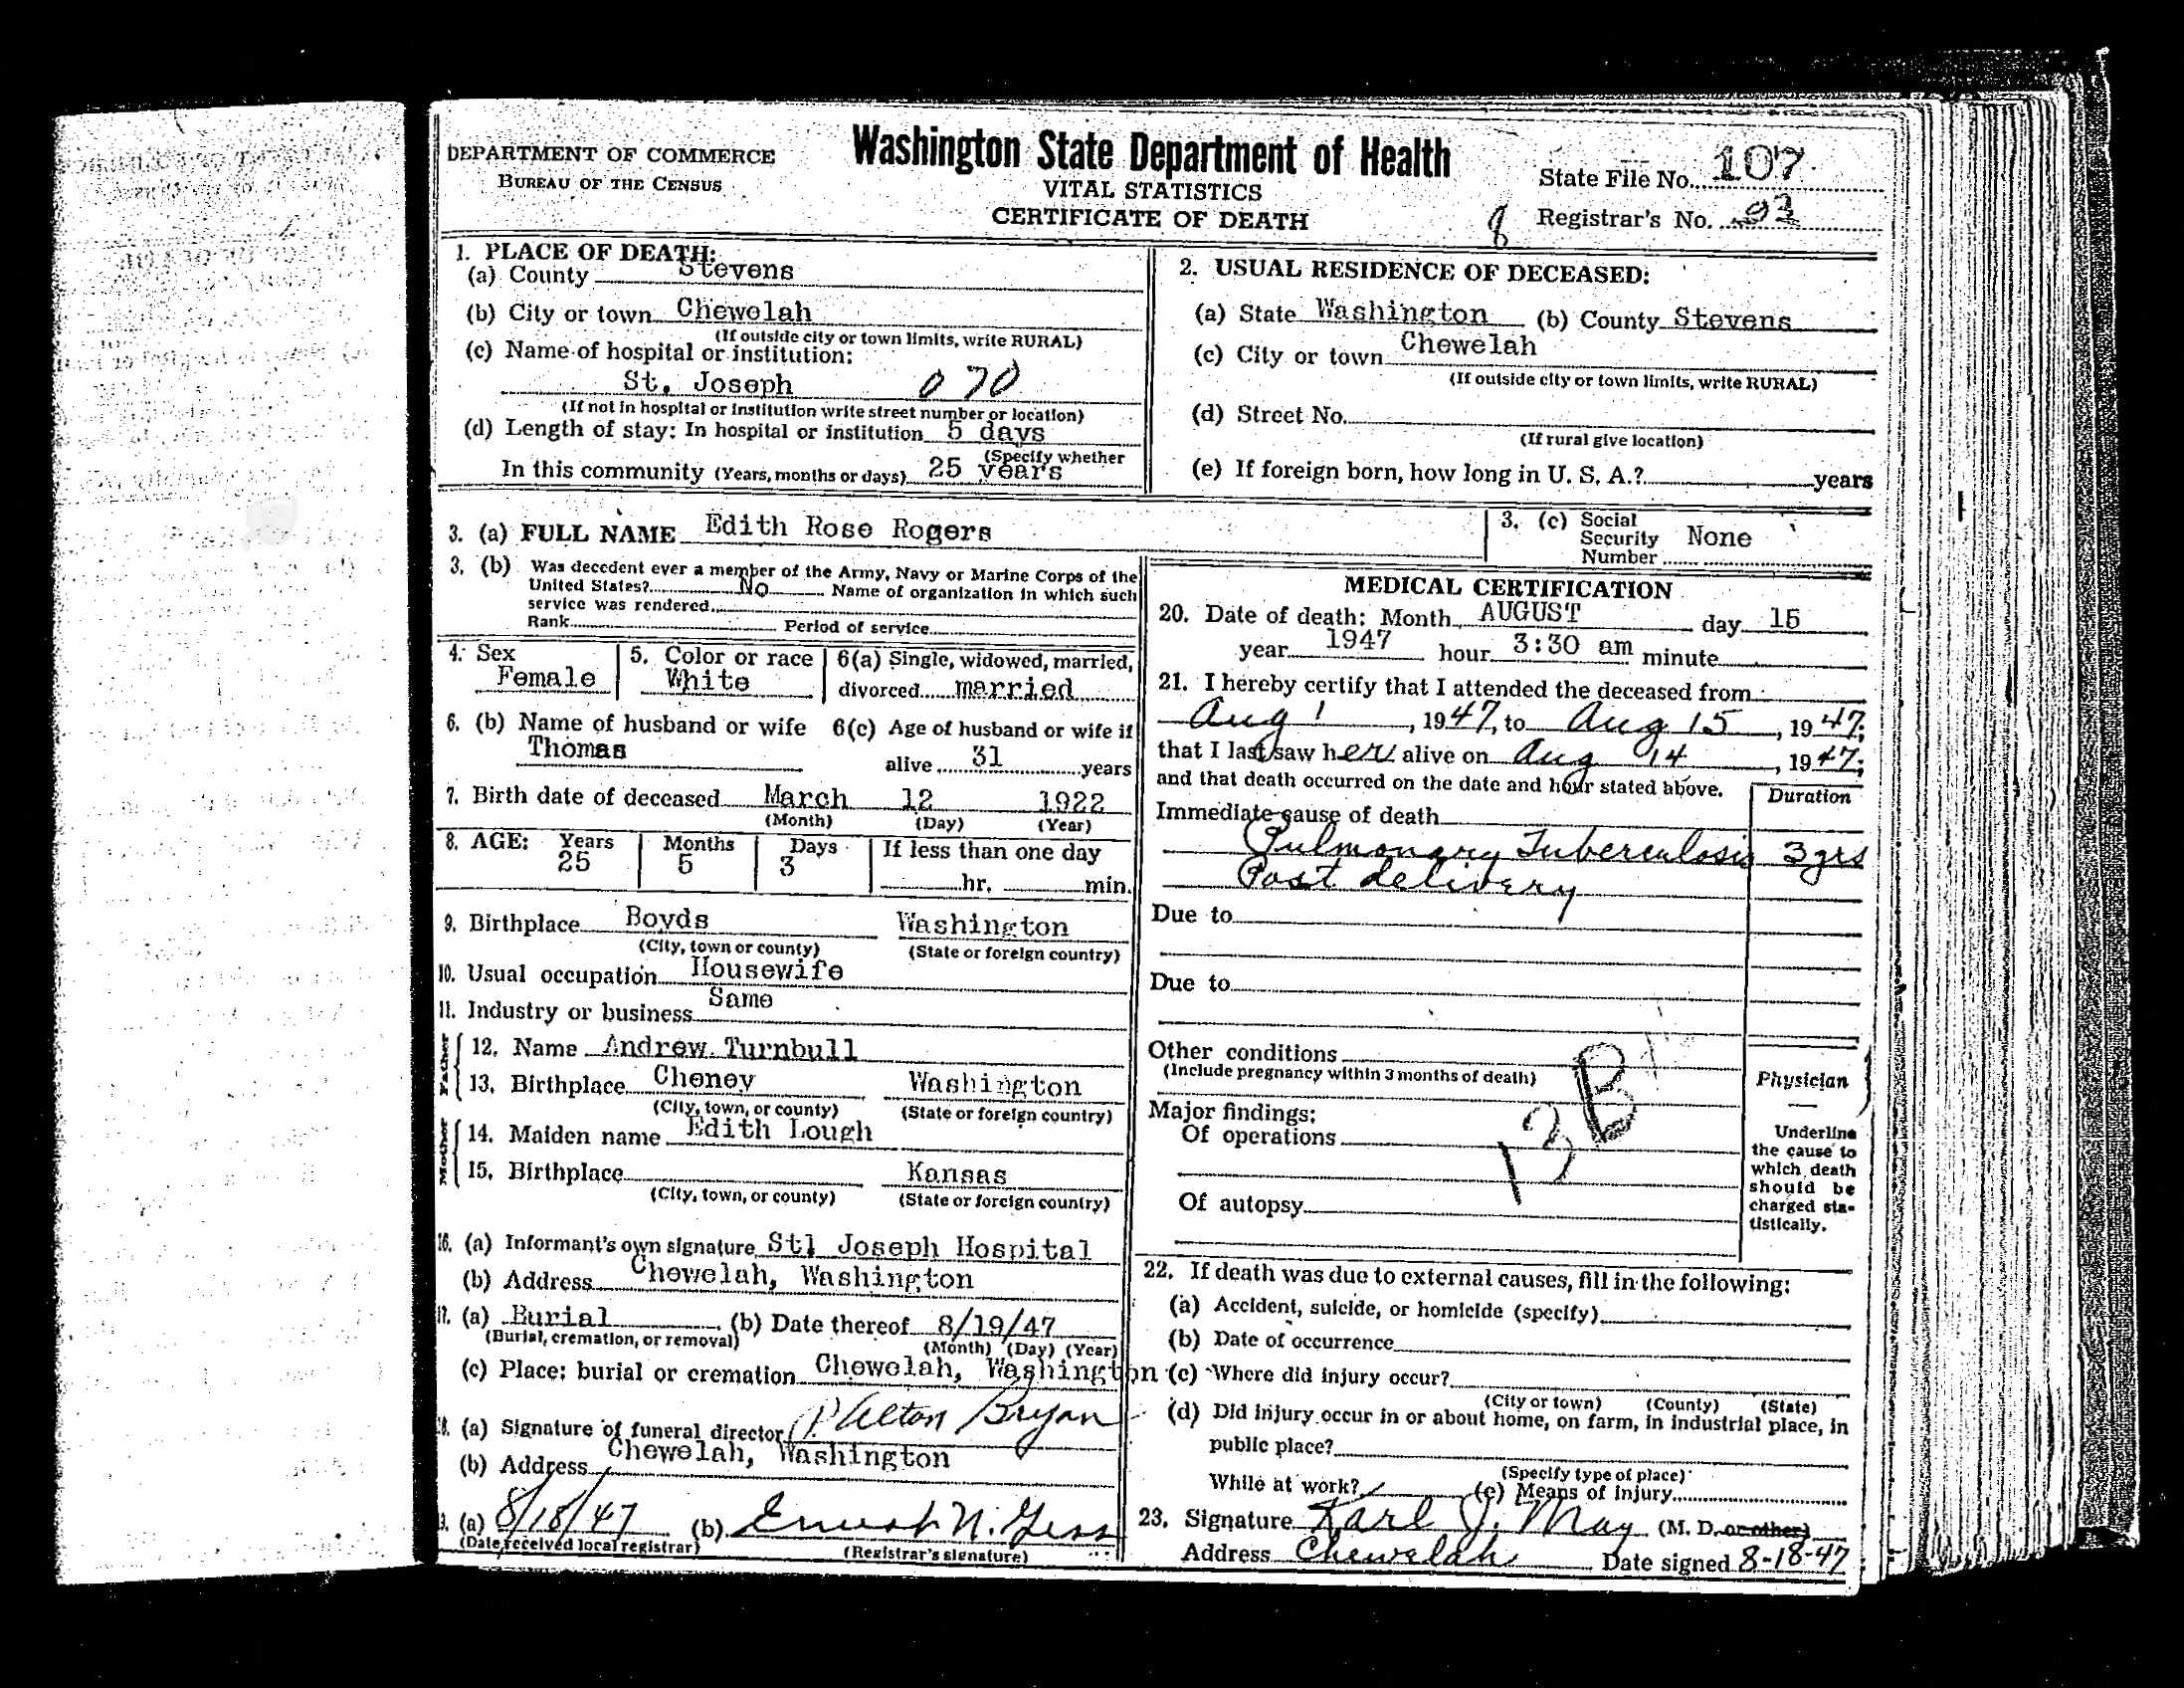 DEPARTMENT OF COMMERCE
BUREAU OF THE CENSUS
Washington State Department of Health
VITAL STATISTICS
CERTIFICATE OF DEATH
State File No. 107
Registrar's No. 93
1. PLACE OF DEATH:
(a) County Stevens
(b) City or town Chewelah
(If outside city or town limits, write RURAL)
(c) Name of hospital or institution:
St. Joseph 070
(If not in hospital or institution write street number or location)
(d) Length of stay: In hospital or institution 5 days
(Specify whether
In this community (Years, months or days) 25 years
2. USUAL RESIDENCE OF DECEASED:
(a) State Washington (b) County Stevens
(c) City or town Chewelah
(If outside city or town limits, write RURAL)
(d) Street No.
(If rural give location)
(e) If foreign born, how long in U. S. A.? years
3. (a) FULL NAME Edith Rose Rogers
3. (c) Social Security Number None
3. (b) Was decedent ever a member of the Army, Navy or Marine Corps of the
United States? No Name of organization in which such
service was rendered.
Rank Period of service
4. Sex Female
5. Color or race White
6(a) Single, widowed, married,
divorced married
6. (b) Name of husband or wife Thomas
6(c) Age of husband or wife if
alive 31 years
7. Birth date of deceased March 12 1922
(Month) (Day) (Year)
8. AGE: Years 25 Months 5 Days 3 If less than one day
hr. min.
9. Birthplace Boyds Washington
(City, town or county) (State or foreign country)
10. Usual occupation Housewife
11. Industry or business Same
Father
12. Name Andrew Turnbull
13. Birthplace Cheney Washington
(City, town, or county) (State or foreign country)
Mother
14. Maiden name Edith Lough
15. Birthplace Kansas
(City, town, or county) (State or foreign country)
16. (a) Informant's own signature Stl Joseph Hospital
(b) Address Chewelah, Washington
17. (a) Burial (b) Date thereof 8/19/47
(Burial, cremation, or removal) (Month) (Day) (Year)
(c) Place: burial or cremation Chewelah, Washington
18. (a) Signature of funeral director Alton Bryan
(b) Address Chewelah, Washington
(a) 8/18/47 (b) N.
(Date received local registrar) (Registrar's signature)
MEDICAL CERTIFICATION
20. Date of death: Month AUGUST day 15
year 1947 hour 3:30 am minute
21. I hereby certify that I attended the deceased from
Aug 1, 1947, to Aug 15, 1947;
that I last saw her alive on Aug 14, 1947;
and that death occurred on the date and hour stated above.
Duration
Immediate cause of death
Pulmonary Tuberculosis 3 yrs
Post delivery
Due to
Due to
Other conditions
(Include pregnancy within 3 months of death)
13B
Major findings:
Of operations
Of autopsy
Physician
Underline
the cause to
which death
should be
charged sta-
tistically.
22. If death was due to external causes, fill in the following:
(a) Accident, suicide, or homicide (specify)
(b) Date of occurrence
(c) Where did injury occur?
(City or town) (County) (State)
(d) Did injury occur in or about home, on farm, in industrial place, in
public place?
(Specify type of place)
While at work? (e) Means of injury
23. Signature Karl J. May (M. D. or other)
Address Chewelah Date signed 8-18-47